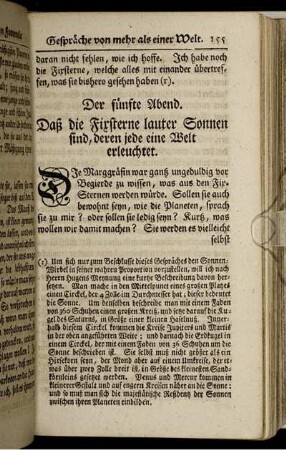 Gespräche von mehr als einer Welt. 155
daran nicht fehlen, wie ich hoffe. Ich habe noch
die Fixsterne, welche alles mit einander übertref-
fen, was sie bishero gesehen haben (r).
Der fünfte Abend.
Daß die Fixsterne lauter Sonnen
sind, deren jede eine Welt
erleuchtet.
Die Marggräfin war gantz ungeduldig vor
Begierde zu wissen, was aus den Fix-
Sternen werden würde. Sollen sie auch
bewohnt seyn, wie die Planeten, sprach
sie zu mir? oder sollen sie ledig seyn? Kurtz, was
wollen wir damit machen? Sie werden es vielleicht
selbst
(r) Um sich nur zum Beschlusse dieses Gespräches den Sonnen-
Wirbel in seiner wahren Proportion vorzustellen, will ich nach
Herrn Hugens Meynung eine kurtze Beschreibung davon her-
setzen. Man mache in den Mittelpunct eines großen Platzes
einen Circkel, der 4 Zolle im Durchmesser hat; dieser bedeutet
die Sonne. Um denselben beschreibe man mit einem Faden
von 360 Schuhen einen großen Kreis, und setze darauf die Ku-
gel des Saturns, in Größe einer kleinen Haselnuß. Inner-
halb diesem Circkel kommen die Kreise Jupiters und Martis
in der oben angeführten Weite; und darnach die Erdkugel in
einem Circkel, der mit einem Faden von 36 Schuhen um die
Sonne beschrieben ist. Sie selbst muß nicht größer als ein
Hirsekorn seyn, der Mond aber auf einem Umkreise, der et-
was über zwey Zolle breit ist, in Größe des kleinesten Sand-
körnleins gesetzet werden. Venus und Mercur kommen in
kleinerer Gestalt und auf engern Kreisen näher an die Sonne:
und so muß man sich die majestätische Residentz der Sonnen
zwischen ihren Planeten einbilden.